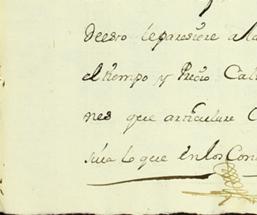 deesto le pareciere a la
el tiempo y Precio Cali
nes que articulare C
súa lo que en los Con